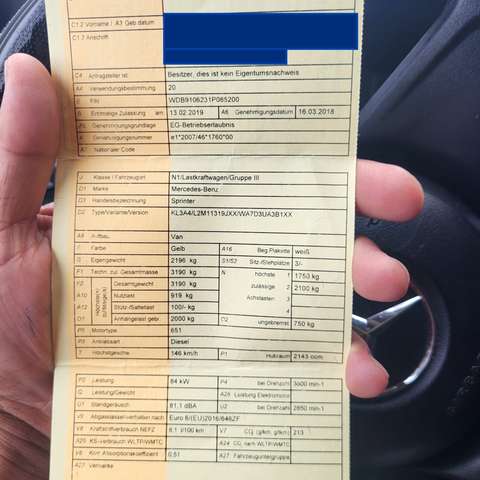 C1.2 Vorname / A3 Geb.datum
C1.3 Anschrift
C4 Antragsteller ist Besitzer, dies ist kein Eigentumsnachweis
A4 Verwendungsbestimmung 20
E FIN WDB9106231P085200
B Erstmalige Zulassung am: 13.02.2019 A6 Genehmigungsdatum 16.03.2018
Genehmigungsgrundlage EG-Betriebserlaubnis
K Genehmigungsnummer e1*2007/46*1760*00
Nationaler Code
J Klasse / Fahrzeugart N1/Lastkraftwagen/Gruppe III
D1 Marke Mercedes-Benz
D3 Handelsbezeichnung Sprinter
D2 Type/Variante/Version KL3A4/L2M11319JXX/WA7D3UA3B1XX
A9 Aufbau Van
Farbe Gelb A16 Beg.Plakette weiß
G Eigengewicht 2196 kg S1/S2 Sitz-/Stehplätze 3/-
F1 Techn. zul. Gesamtmasse 3190 kg N höchste 1 1750 kg
F2 Gesamtgewicht 3190 kg zulässige 2 2100 kg
A10 Nutzlast 919 kg Achslasten 3
A12 Stütz-/Sattellast 100/- kg 4
O1 Anhängelast gebr. 2000 kg O2 ungebremst 750 kg
P5 Motortype 651
P3 Antriebsart Diesel
T Höchstgeschw. 146 km/h P1 Hubraum 2143 ccm
P2 Leistung 84 kW P4 bei Drehzahl 3800 min-1
Q Leistung/Gewicht A26 Leistung Elektromotor
U1 Standgeräusch 81.1 dBA U2 bei Drehzahl 2850 min-1
V9 Abgasklasse/verhalten nach Euro 6/(EU)2016/646ZF
V8 Kraftstoffverbrauch NEFZ 8.1 l/100 km V7 CO2 (g/km, g/km) 213
A25 KS-verbrauch WLTP/WMTC A24 CO2 nach WLTP/WMTC
V6 Korr. Absorptionskoeffizient 0,51 A27 Fahrzeuguntergruppe
A23 Vermerke